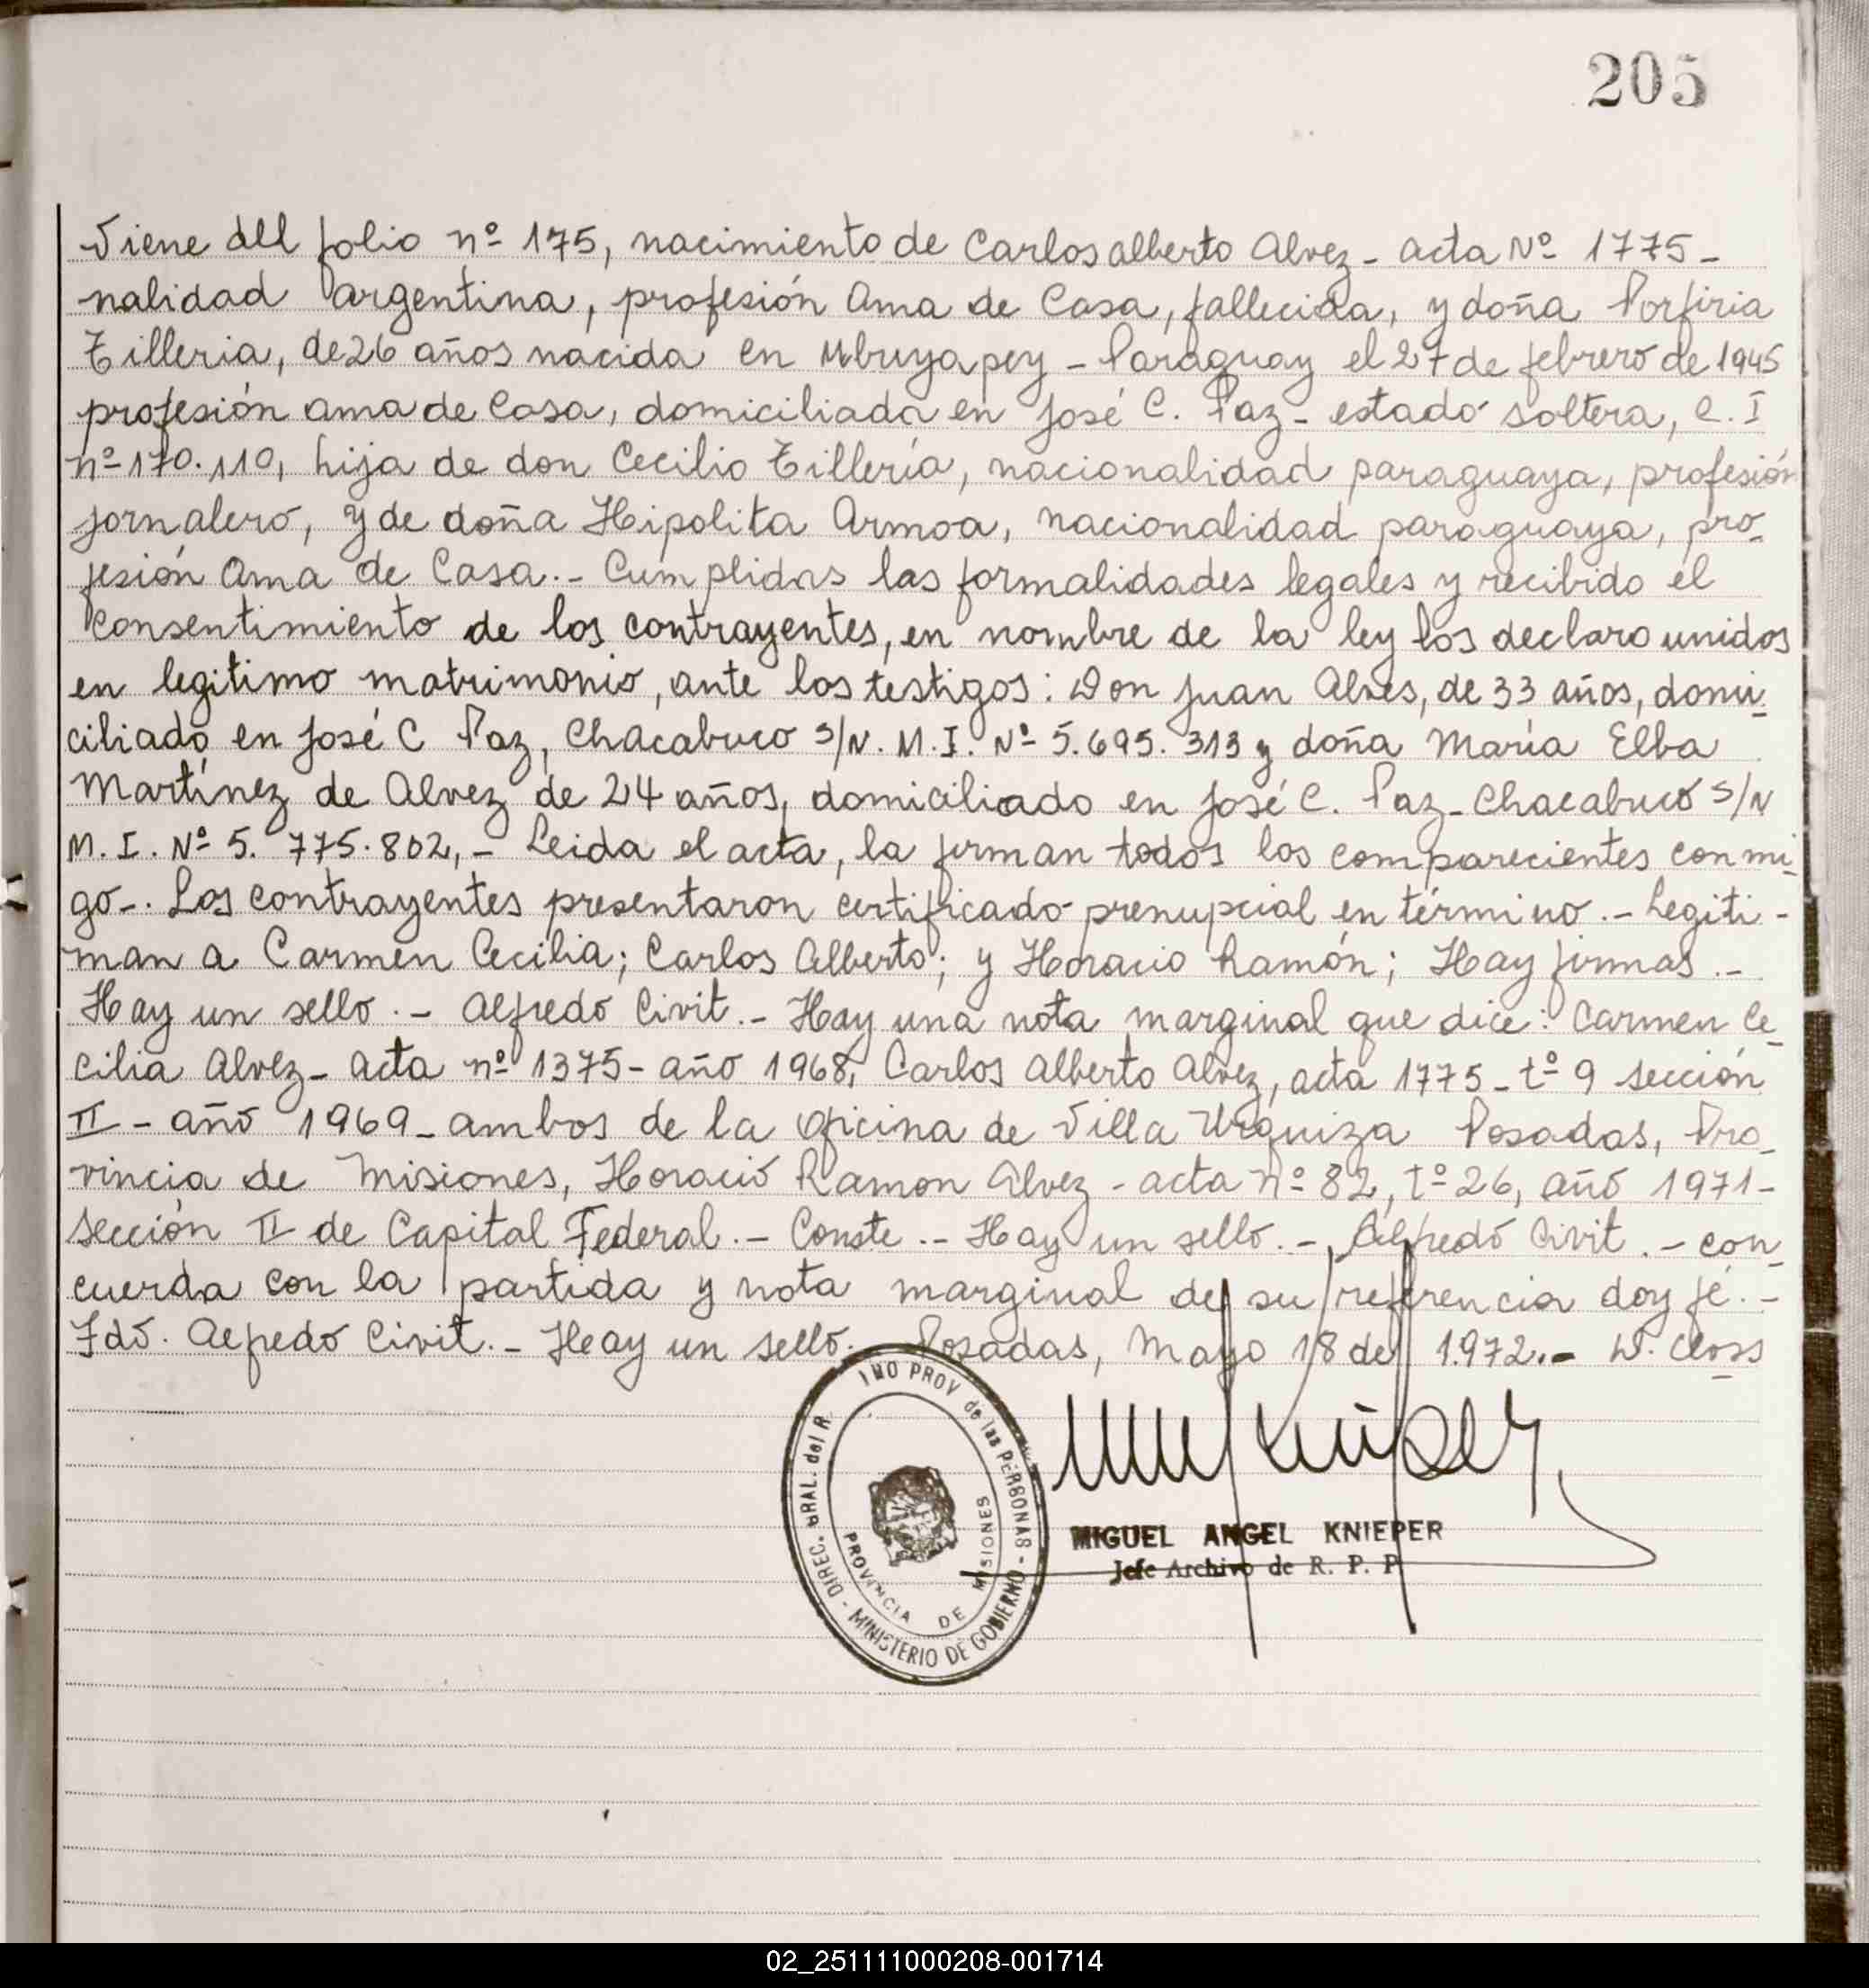 205
Viene del folio nº 175, nacimiento de Carlos Alberto Alvez - acta Nº 1775 -
nalidad argentina, profesión Ama de Casa, fallecida, y doña Porfiria
Tilleria, de 26 años nacida en Mbuyapey - Paraguay el 27 de febrero de 1945
profesión ama de Casa, domiciliada en José C. Paz - estado soltera, C. I
nº 170.110, hija de don Cecilio Tillería, nacionalidad paraguaya, profesión
jornalero, y de doña Hipolita Armoa, nacionalidad paraguaya, pro-
fesión Ama de Casa.- Cumplidas las formalidades legales y recibido el
consentimiento de los contrayentes, en nombre de la ley los declaro unidos
en legitimo matrimonio, ante los testigos: Don Juan Alves, de 33 años, domi-
ciliado en José C Paz, Chacabuco S/N. M.I. Nº 5.695.313 y doña María Elba
Martínez de Alvez de 24 años, domiciliado en José C. Paz - Chacabuco S/N
M.I. Nº 5.775.802,- Leida el acta, la firman todos los comparecientes conmi-
go-. Los contrayentes presentaron certificado prenupcial en término.- Legiti-
man a Carmen Cecilia; Carlos Alberto; y Horacio Ramón; Hay firmas.-
Hay un sello.- Alfredo Civit.- Hay una nota marginal que dice: Carmen Ce-
cilia Alvez - Acta nº 1375 - año 1968, Carlos Alberto Alvez, acta 1775 - tº 9 sección
II - año 1969 - ambos de la oficina de Villa Urquiza Posadas, Pro-
vincia de Misiones, Horacio Ramon Alvez - acta nº 82, tº 26, año 1971 -
sección II de Capital Federal.- Conste.- Hay un sello.- Alfredo Civit.- Con-
cuerda con la partida y nota marginal de su referencia doy fé.-
Fdo. Alfredo Civit.- Hay un sello. Posadas, Mayo 18 de 1.972.- W. Closs
DIREC. GRAL. del R. PROV de las PERSONAS - MINISTERIO DE GOBIERNO -
PROVINCIA DE MISIONES
MIGUEL ANGEL KNIEPER
Jefe Archivo de R. P. P.
02_251111000208-001714